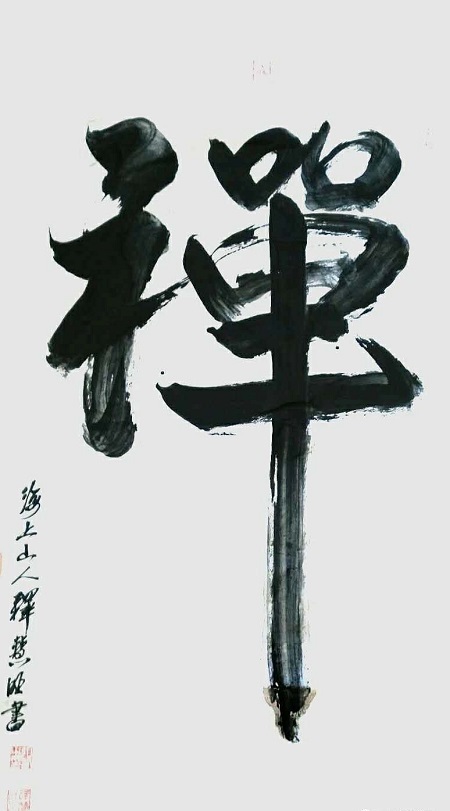 禪
海上山人釋慧明書